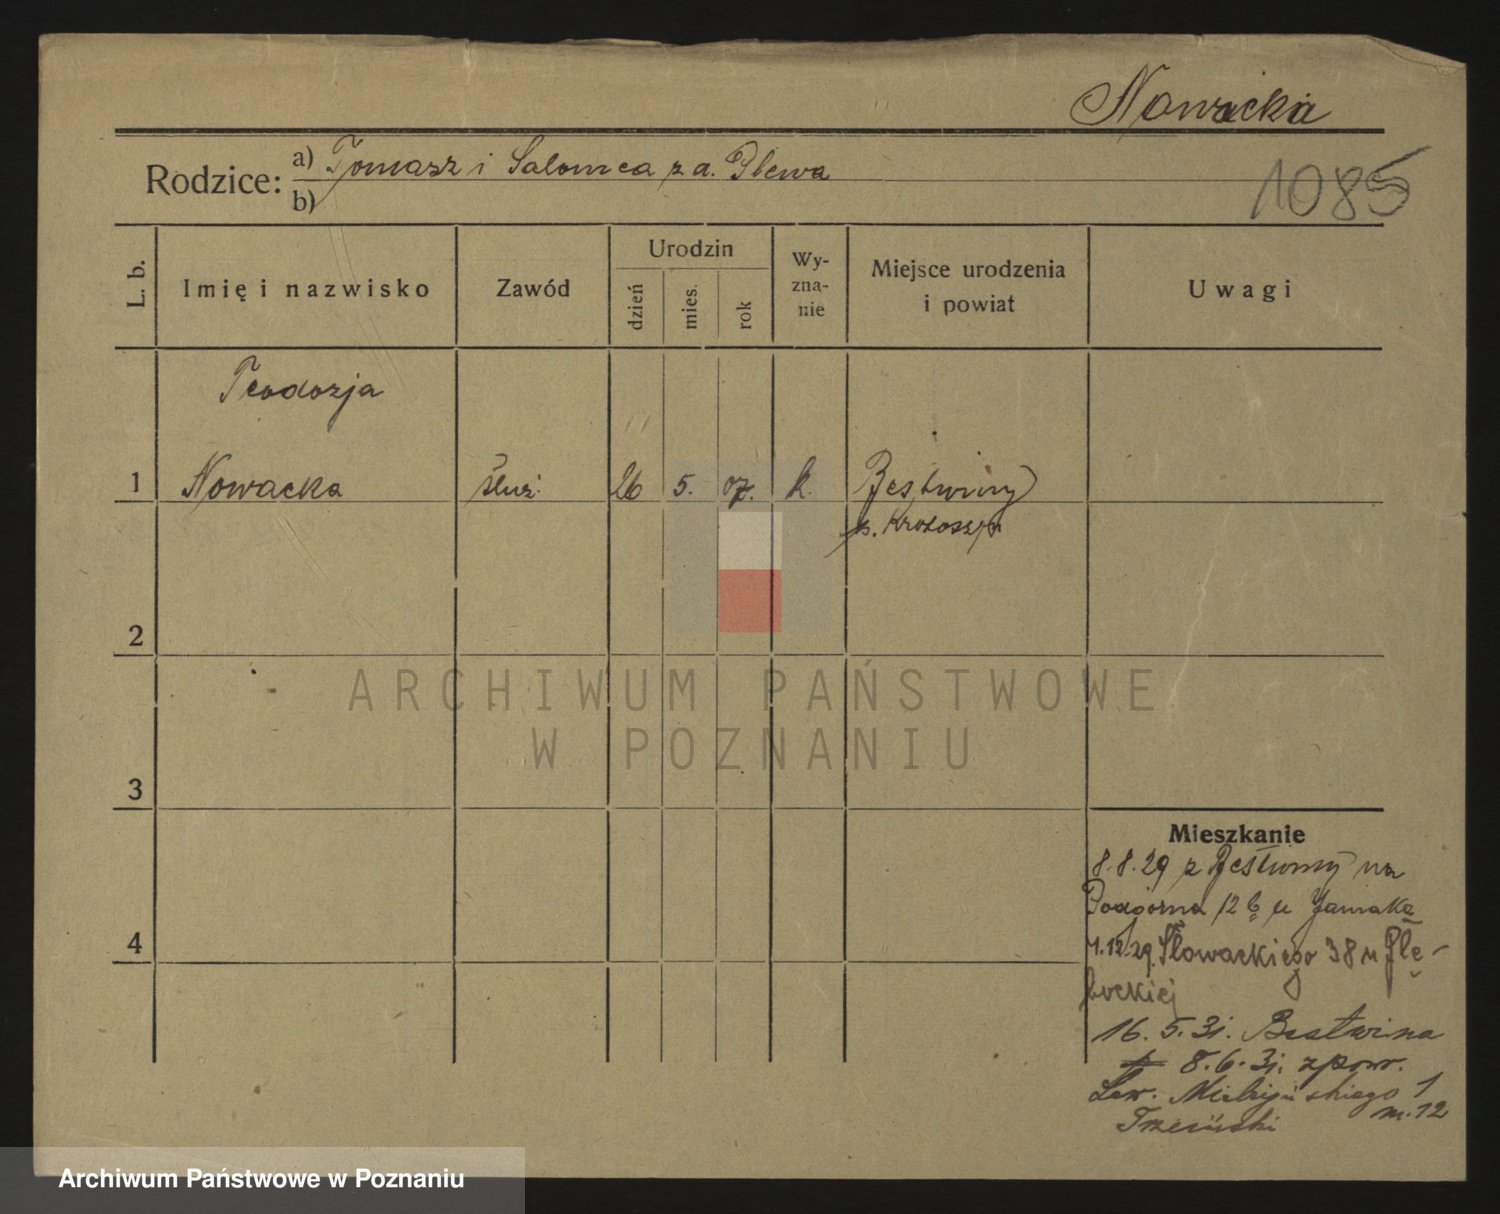 Nowacka
Rodzice: a) Tomasz i Salomea z d. Plewa
b)
1085
L. b.
Imię i nazwisko
Zawód
Urodzin
dzień
mies.
rok
Wy-
zna-
nie
Miejsce urodzenia
i powiat
Uwagi
Teodozja
1 Nowacka służ. 26 5. 07. k. Bestwiny
p. Krotoszyn
2
3
4
ARCHIWUM PAŃSTWOWE
W POZNANIU
Mieszkanie
8.8.29 z Bestwiny na
Podgórna 12 b u Jamaka
4.12.29. Słowackiego 38 u Głę-
bockiej
16. 5. 31. Bestwina
8.6.31. z pow.
Sew. Mielżyńskiego 1
m. 12
Trzciński
Archiwum Państwowe w Poznaniu